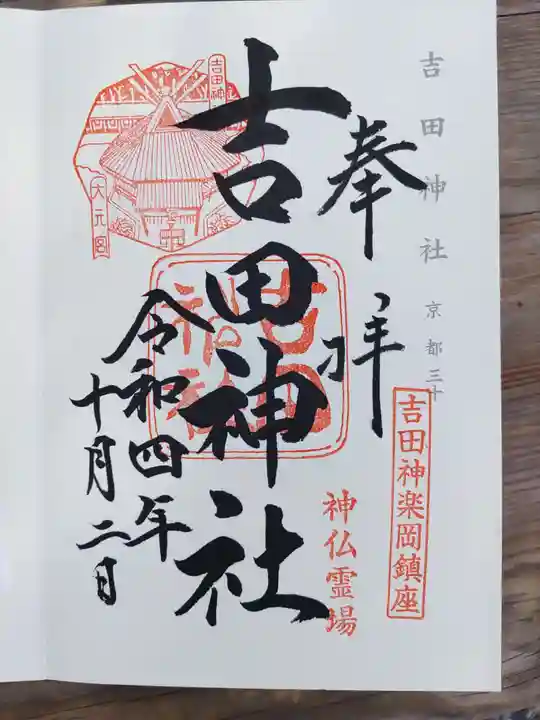 吉田神社 京都三十
奉拝
吉田神楽岡鎮座
神仏霊場
吉田神社
吉田神社
吉田神
大元宮
令和四年
十月二日